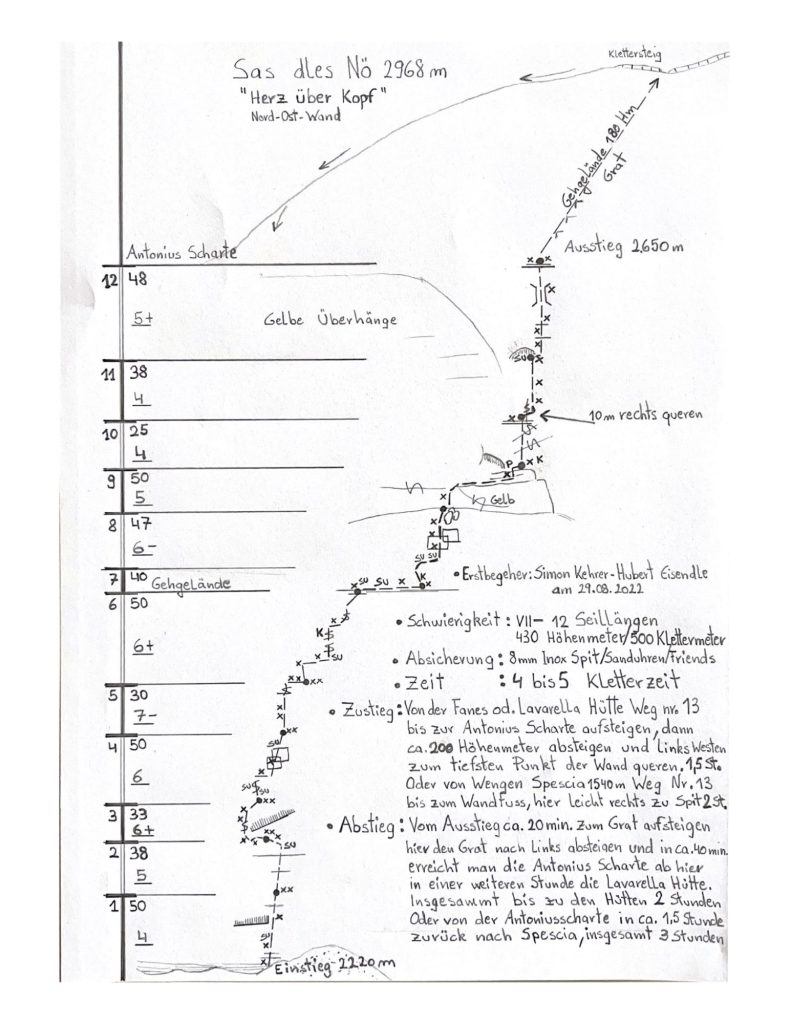 Klettersteig
Sas dles Nö 2968m
"Herz über Kopf"
Nord-Ost-Wand
Gehgelände 180 Hm
Grat
Antonius Scharte
Ausstieg 2.650m
12 48
5+
Gelbe Überhänge
11 38
4
10m rechts queren
10 25
4
9 50
5
Gelb
8 47
6-
7 40 Gehgelände
• Erstbegeher: Simon Kehrer-Hubert Eisendle
am 29.08.2022
6 50
6+
• Schwierigkeit: VII- 12 Seillängen
430 Höhenmeter/500 Klettermeter
• Absicherung: 8mm Inox Spit/Sanduhren/Friends
• Zeit : 4 bis 5 Kletterzeit
5 30
7-
• Zustieg: Von der Fanes od. Lavarella Hütte Weg nr. 13
bis zur Antonius Scharte aufsteigen, dann
ca. 200 Höhenmeter absteigen und Links Westen
zum tiefsten Punkt der Wand queren. 1,5 St.
Oder von Wengen Spescia 1540m Weg Nr. 13
bis zum Wandfuss, hier leicht rechts zu Spit 2 St.
4 50
6
3 33
6+
• Abstieg: Vom Ausstieg ca. 20 min. zum Grat aufsteigen
hier den Grat nach Links absteigen und in ca. 40 min.
erreicht man die Antonius Scharte ab hier
in einer weiteren Stunde die Lavarella Hütte.
Insgesammt bis zu den Hütten 2 Stunden
Oder von der Antoniusscharte in ca. 1,5 Stunde
zurück nach Spescia, insgesamt 3 Stunden
2 38
5
1 50
4
Einstieg 2220m